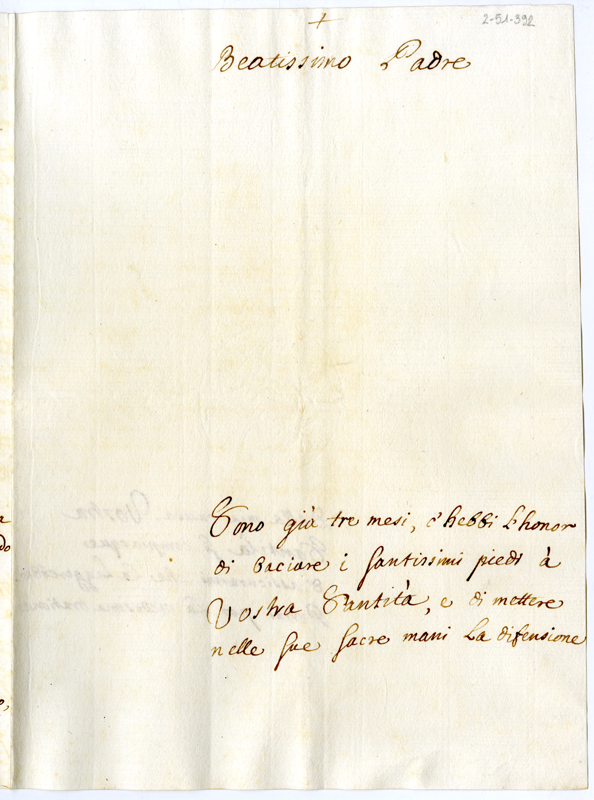 +
2-51-392
Beatissimo Padre
Sono già tre mesi, c'hebbi l'honor
di baciare i santissimi piedi à
Vostra Santità, e di mettere
nelle sue sacre mani la difensione